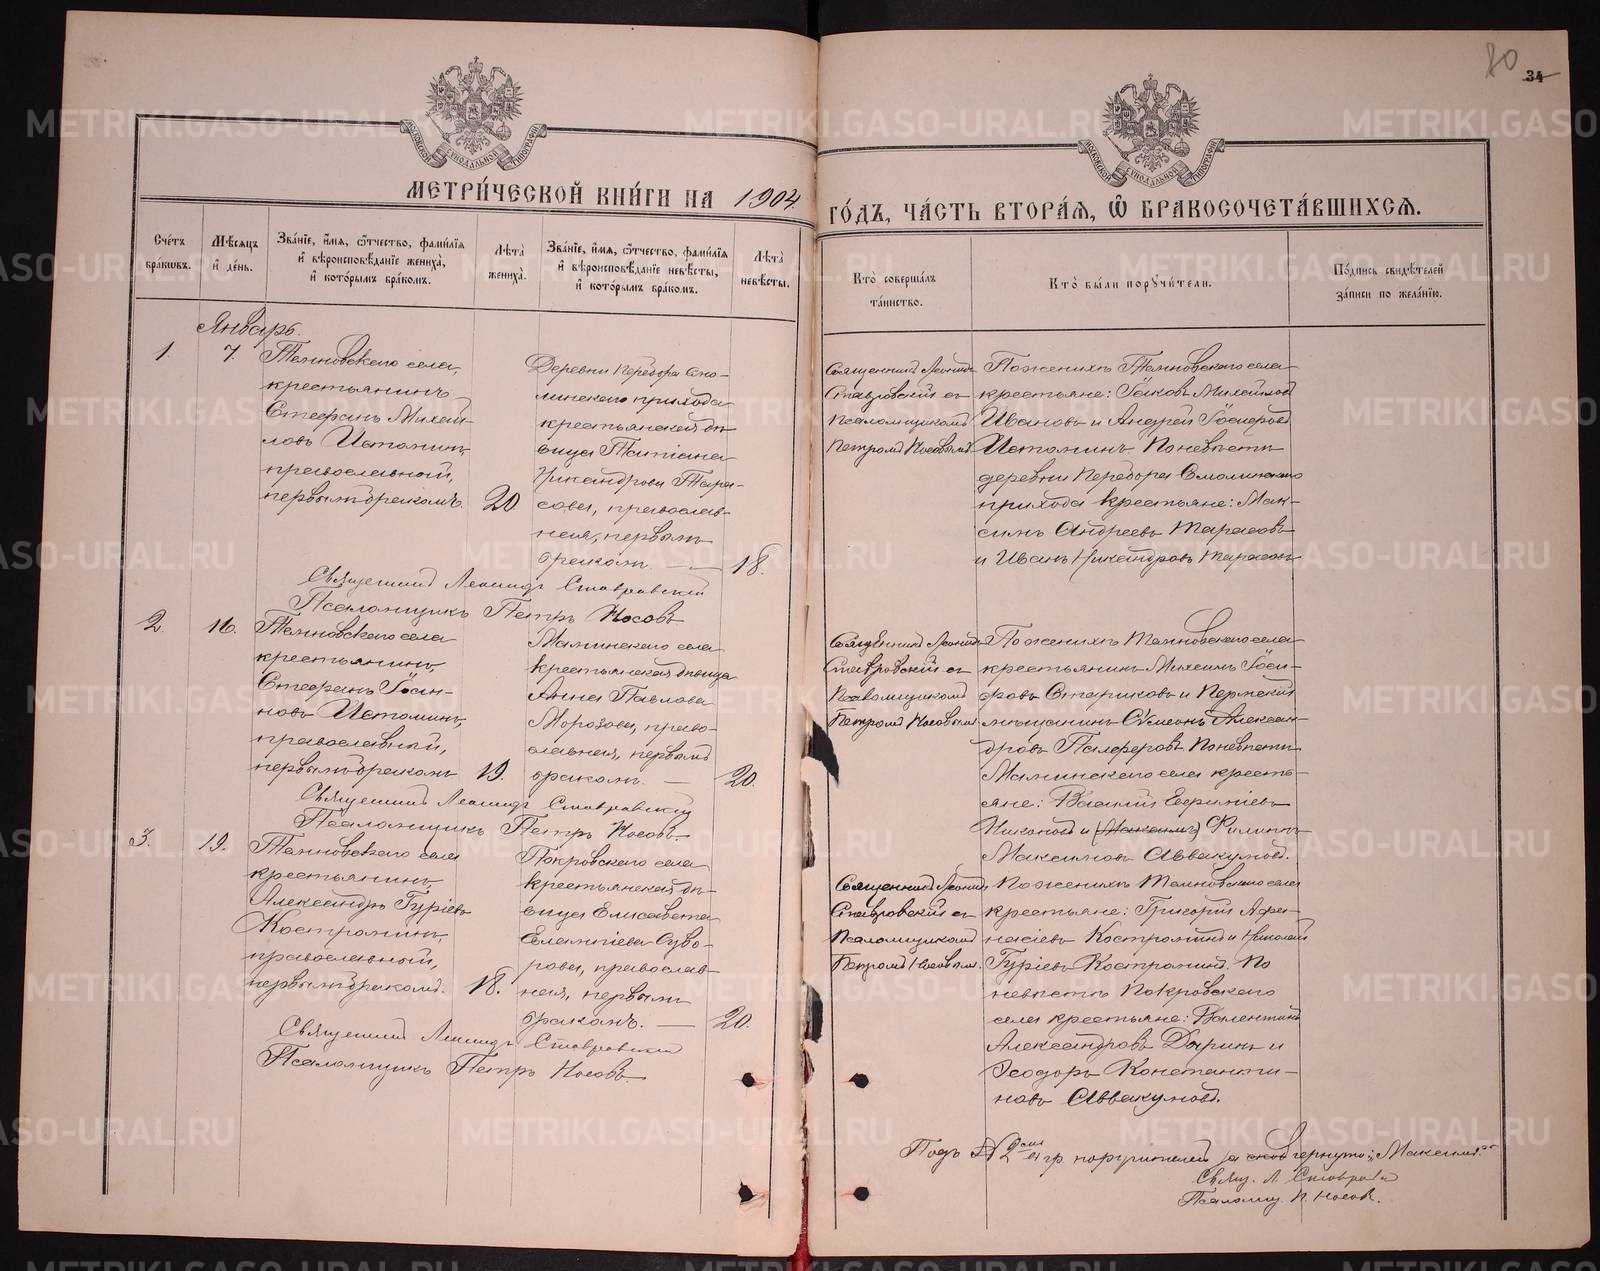 80
34
МОСКОВСКОЙ СѴНОДАЛЬНОЙ ТИПОГРАФІИ
МОСКОВСКОЙ СѴНОДАЛЬНОЙ ТИПОГРАФІИ
МЕТРИ́ЧЕСКОЙ КНИ́ГИ НА 1904
ГО́ДЪ, ЧА́СТЬ ВТОРА́Я, Ѡ҆ БРАКОСОЧЕТА́ВШИХСЯ.
Сче́тъ
бра́кѡвъ.
Мѣ́сяцъ
и҆ де́нь.
Зва́нїе, и҆́мя, ѻ҆́тчество, фами́лїя
и҆ вѣроисповѣ́данїе жениха̀,
и҆ кото́рымъ бра́комъ.
Лѣ́та̀
жениха̀.
Зва́нїе, и҆́мя, ѻ҆́тчество, фами́лїя
и҆ вѣроисповѣ́данїе невѣ́сты,
и҆ кото́рымъ бра́комъ.
Лѣ́та̀
невѣ́сты.
Кто̀ соверша́лъ
та́инство.
Кто̀ бы́ли порꙋчи́тели.
По́дпись свидѣ́телей
за́писи по жела́нїю.
Январь.
1.
7.
Темновскаго села,
крестьянинъ
Стефанъ Михей-
ловъ Истоминъ,
православный,
первымъ бракомъ.
20
Деревни Перебора Смо-
линскаго прихода
крестьянская дѣ-
вица Татіана
Никандрова Тара-
сова, православ-
ная, первымъ
бракомъ —
18.
Священникъ Леонидъ
Ставровскій съ
Псаломщикомъ
Петромъ Носовымъ
По женихѣ Темновскаго села
крестьяне: Іаковъ Михеиловъ
Ивановъ и Андрей Іосифовъ
Истоминъ. По невѣстѣ
деревни Перебора Смолинскаго
прихода крестьяне: Мак-
симъ Андреевъ Тарасовъ
и Иванъ Никандровъ Тарасовъ
Священникъ Леонидъ Ставровскій
Псаломщикъ Петръ Носовъ
2.
16.
Темновскаго села
крестьянинъ,
Стефанъ Іоан-
новъ Истоминъ,
православный,
первымъ бракомъ
19.
Маминскаго села
крестьянская дѣвица
Анна Павлова
Морозова, право-
славная, первымъ
бракомъ. —
20.
Священникъ Леонидъ
Ставровскій съ
Псаломщикомъ
Петромъ Носовымъ
По женихѣ Темновскаго села
крестьянинъ Михеилъ Іоси-
фовъ Стариковъ и Пермскій
мѣщанинъ Сѵмеонъ Алексан-
дровъ Палферовъ. По невѣстѣ
Маминскаго села кресть-
яне: Василій Ефиміевъ
Никоновъ и (Максимъ) Филиппъ
Максимовъ Аввакумовъ.
Священникъ Леонидъ Ставровскій
Псаломщикъ Петръ Носовъ.
3.
19.
Темновскаго села
крестьянинъ,
Александръ Гуріевъ
Костроминъ,
православный,
первымъ бракомъ.
18.
Покровскаго села
крестьянская дѣ-
вица Елисавета
Евлампіева Суво-
рова, православ-
ная, первымъ
бракомъ. —
20.
Священникъ Леонидъ
Ставровскій съ
Псаломщикомъ
Петромъ Носовымъ.
По женихѣ Темновскаго села
крестьяне: Григорій Афа-
насіевъ Костроминъ и Николай
Гуріевъ Костроминъ. По
невѣстѣ Покровскаго
села крестьяне: Валентинъ
Александровъ Дыринъ и
Ѳеодоръ Константи-
новъ Аввакумовъ.
Священникъ Леонидъ Ставровскій
Псаломщикъ Петръ Носовъ.
Подъ № 2 въ гр. поручителей зачеркнуто: „Максимъ“
Свящ. Л. Ставровскій
Псаломщ. П. Носовъ.
METRIKI.GASO-URAL.RU